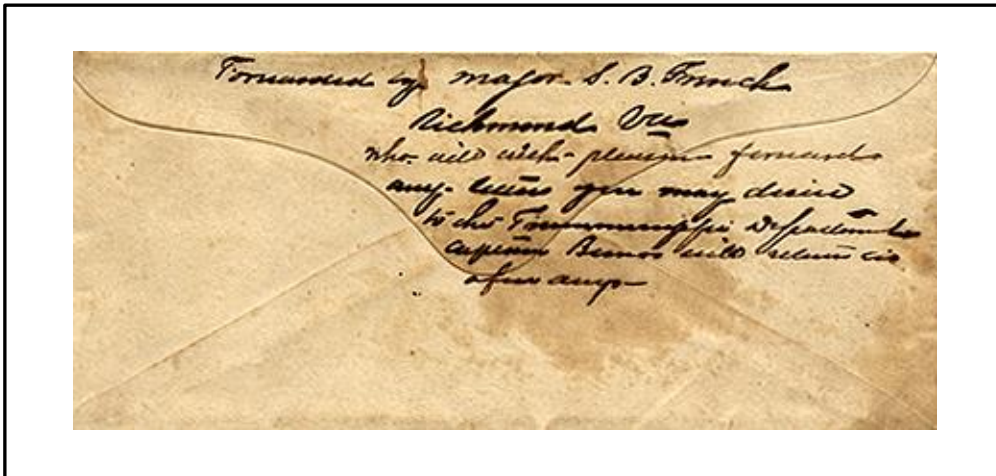 Forwarded by Major S. B. French
Richmond Va
who will with pleasure forward
any letters you may desire
to the Trans Mississippi Department
Captain will return in
a few days